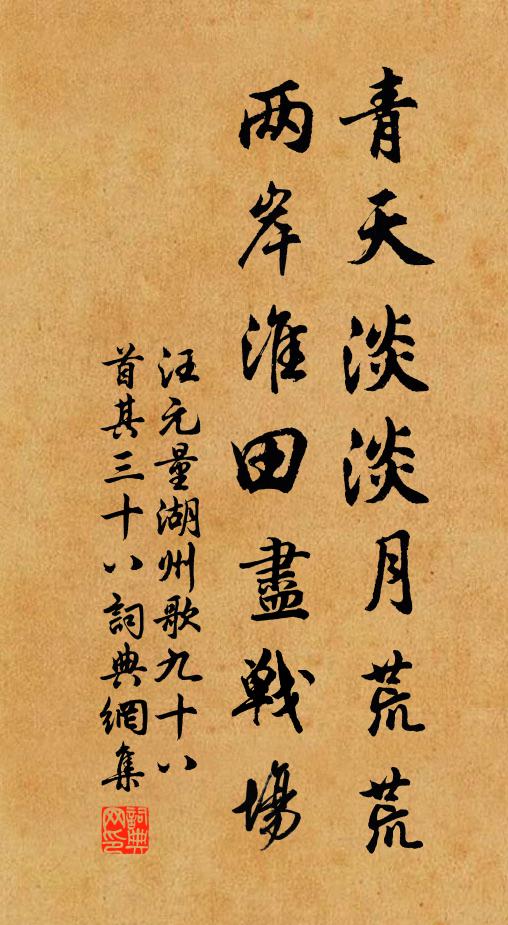 青天淡淡月荒荒
两岸淮田盡戦場
汪元量湖州歌九十八
首其三十八詞典網集
詞典网印